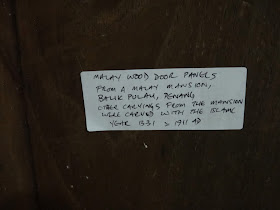 MALAY WOOD DOOR PANELS
FROM A MALAY MANSION,
BALIK PULAU, PENANG,
OTHER CARVINGS FROM THE MANSION
WERE CARVED WITH THE ISLAMIC
YEAR 1331 = 1911 AD